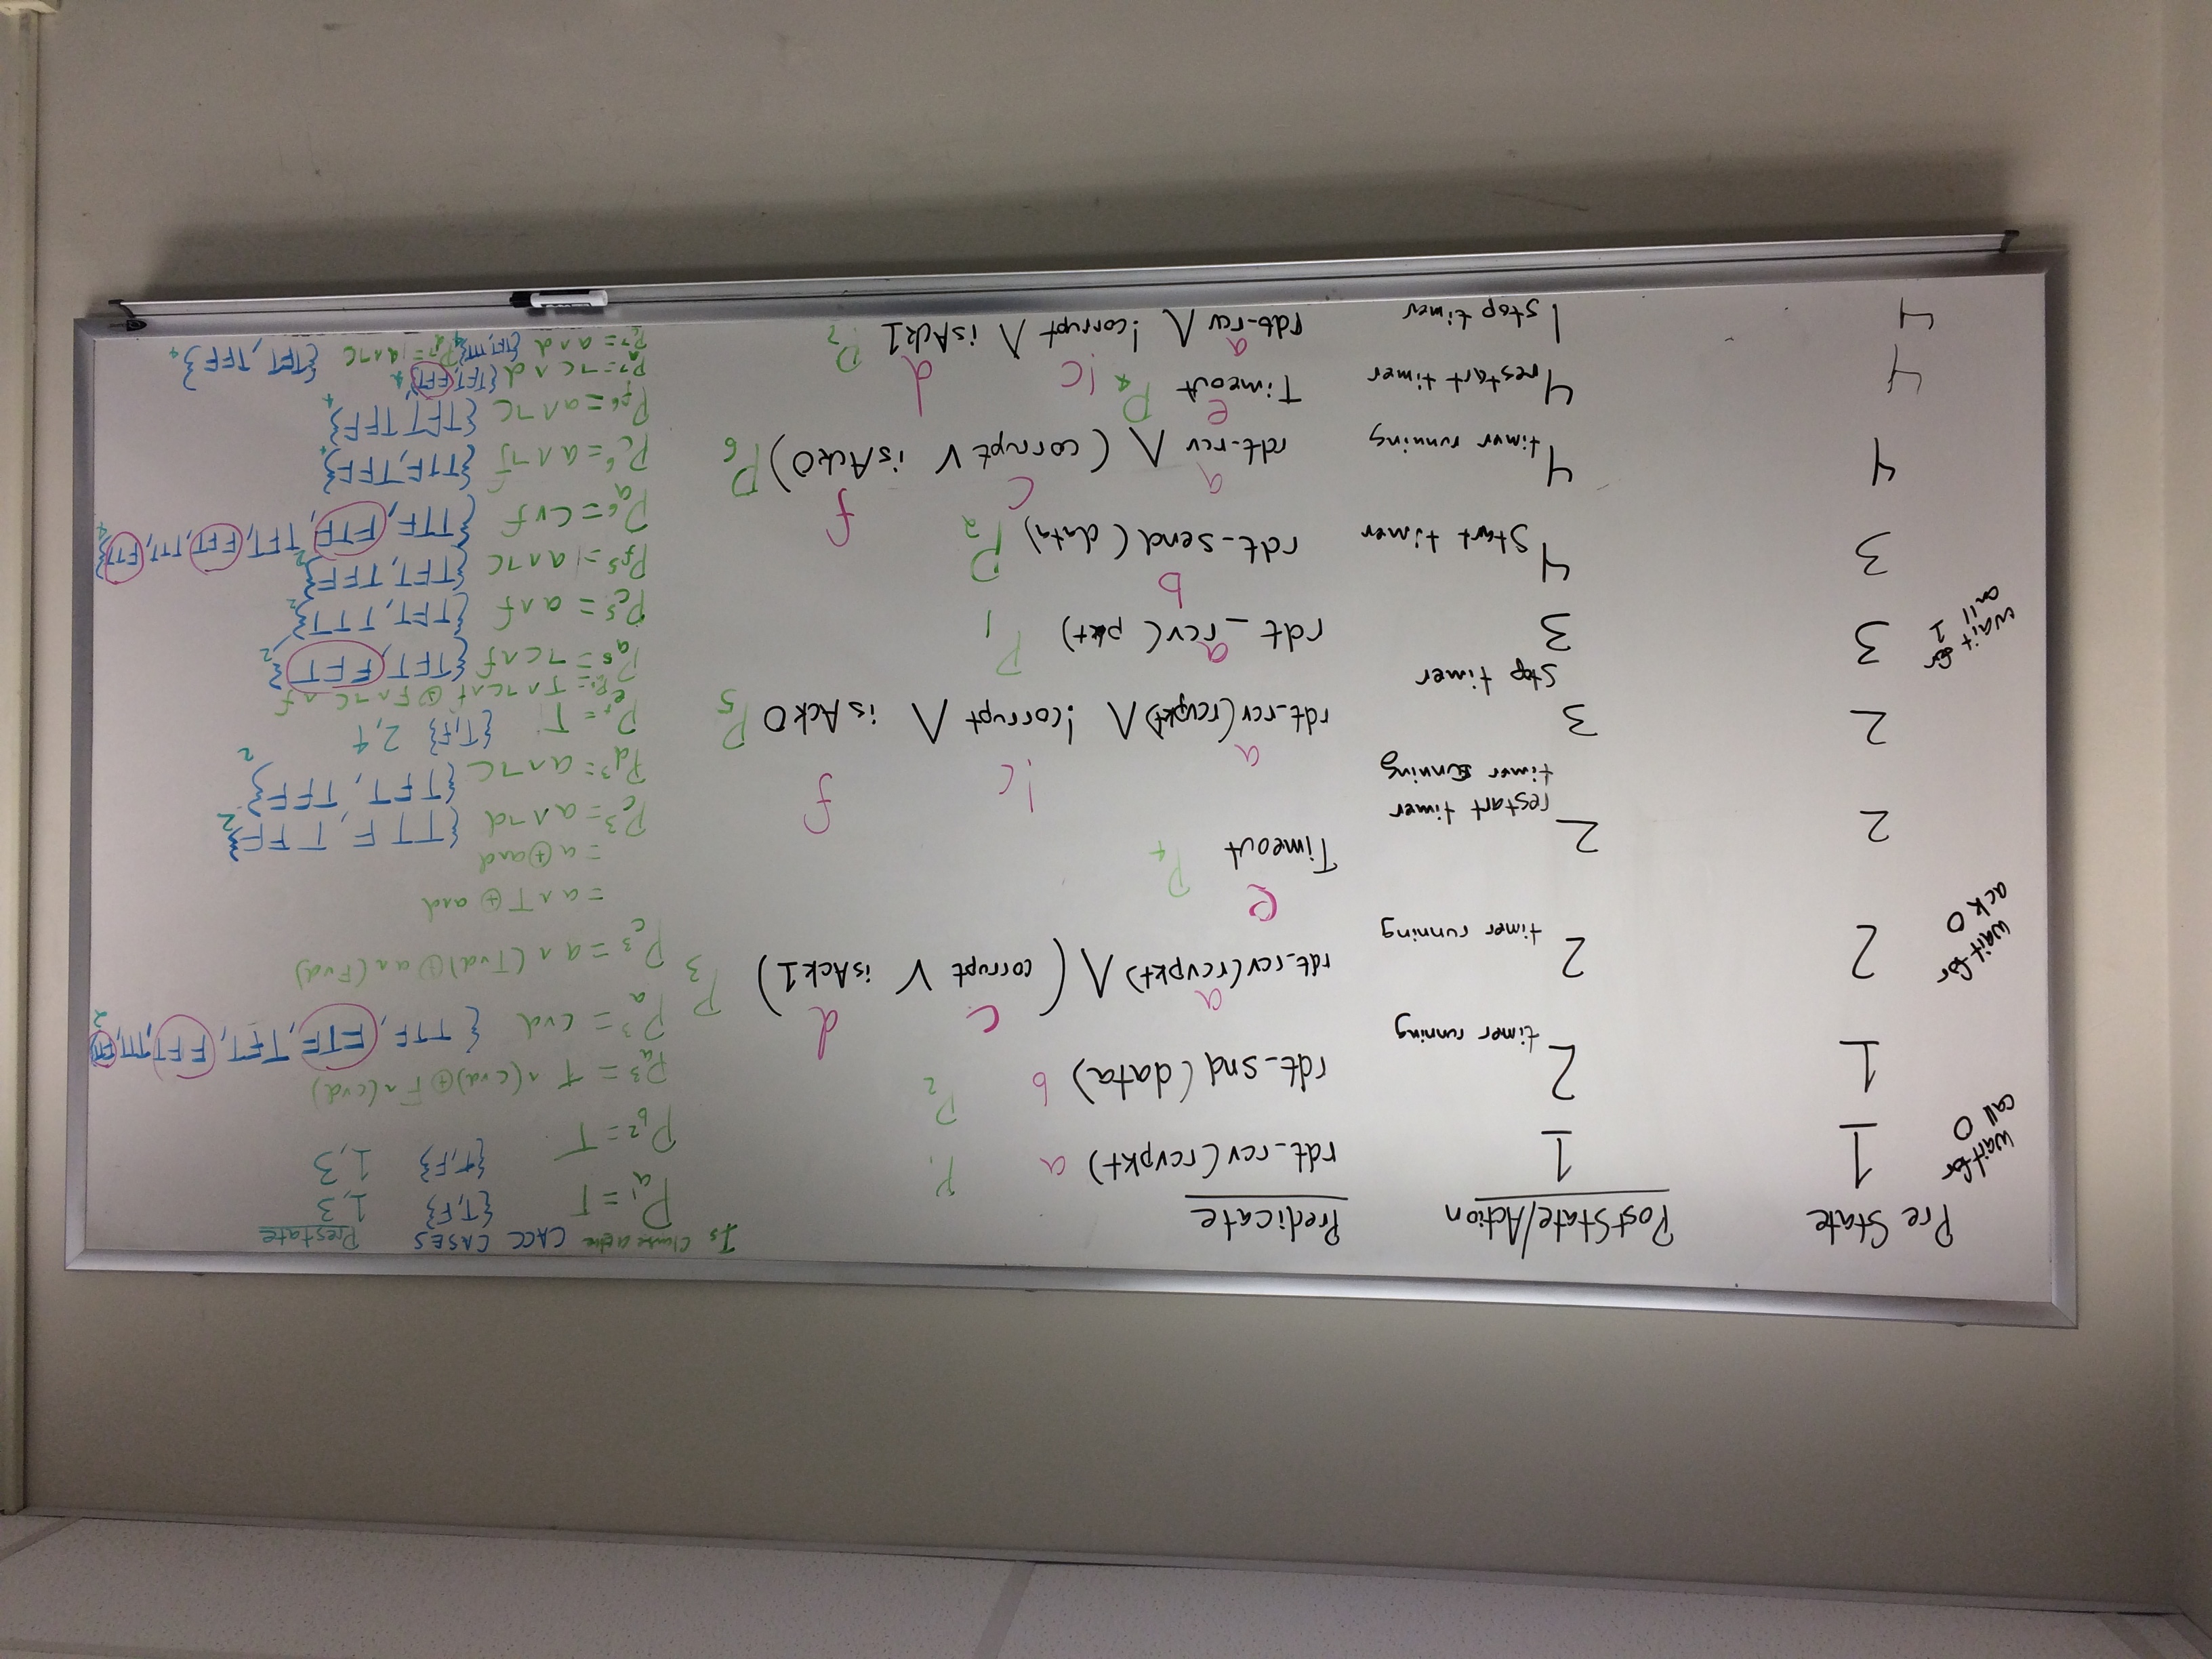 Pre State PostState/Action Predicate
wait for call 0
1 1 rdt_rcv(rcvpkt) a P1
1 2 timer running rdt_snd(data) b P2
wait for ack 0
a c d
2 2 timer running rdt_rcv(rcvpkt) ∧ (corrupt ∨ isAck1) P3
e
2 2 restart timer Timeout P4
timer running
a !c f
2 3 rdt_rcv(rcvpkt) ∧ !corrupt ∧ isAck0 P5
stop timer
wait for call 1
a
3 3 rdt_rcv( pkt) P1
b
3 4 start timer rdt_send(data) P2
a c f
4 4 timer running rdt-rcv ∧ (corrupt ∨ isAck0) P6
e
4 4 restart timer Timeout P4
a !c d
4 1 stop timer rdt-rcv ∧ !corrupt ∧ isAck1 P7
Is Clause active CACC CASES Prestate
Pa1 = T {T,F} 1,3
Pb2 = T {T,F} 1,3
Pa3 = T ∧(c∨d)⊕F∧(c∨d)
Pa3 = c∨d { TTF, FTF, TFT, FFT, TTT, FTT} 2
Pc3 = a∧(T∨d)⊕a∧(F∨d)
= a∧T⊕ a∧d
= a⊕a∧d
Pc3 = a∧¬d {TTF, TFF} 2
Pd3 = a∧¬c {TFT, TFF} 2
Pe4 = T {T,F} 2,4
Pa = T∧¬c∧f ⊕ F∧¬c∧f
Pa5 = ¬c∧f {TFT, FFT} 2
Pc5 = a∧f {TFT, TTT} 2
Pf5 = a∧¬c {TFT, TFF} 2
Pa6 = c∨f {TTF, FTF, TFT, FFT, TTT, FTT} 4
Pc6 = a∧¬f {TTF,TFF} 4
Pf6 = a∧¬c {TFT TFF} 4
Pa7 = ¬c∧d {TFT, FFT} 4
Pc7 = a∧d {TFT,TTT} 4 Pd7 = a∧¬c {TFT, TFF} 4